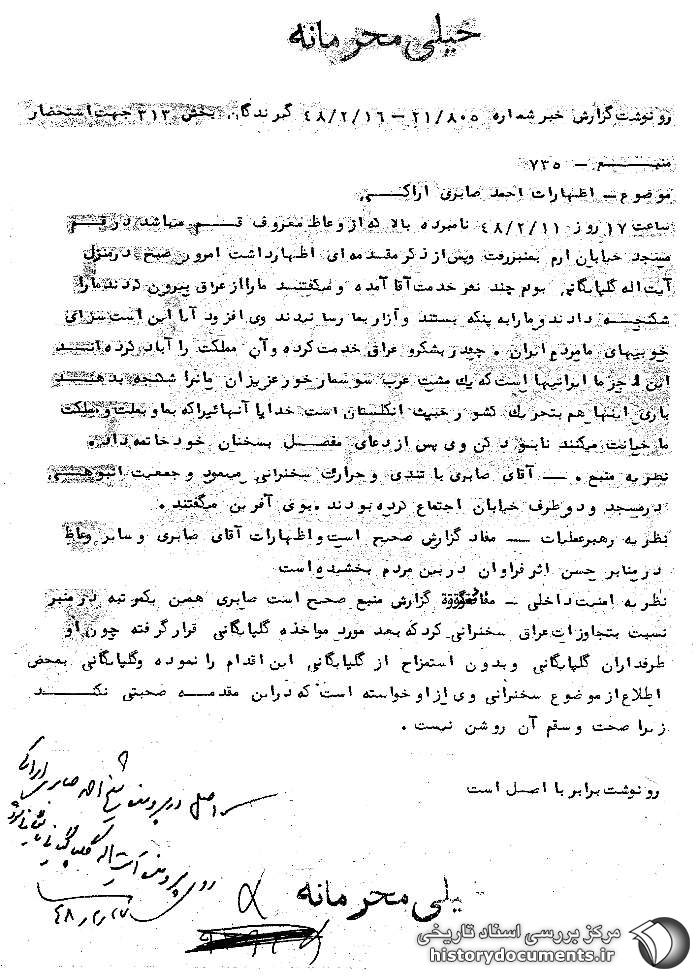 خیلی محرمانه
رونوشت گزارش خبر شماره ۲۱/۸۰۵ – ۴۸/۲/۱۶ گیرندگان بخش ۳۱۳ جهت استحضار
منبع – ۷۳۵
موضوع – اظهارات احمد صابری اراکی
ساعت ۱۷ روز ۴۸/۲/۱۱ نامبرده بالا که از وعاظ معروف قم میباشد در قم
مسجد خیابان ارم بمنبر رفت و پس از ذکر مقدمه ای اظهار داشت امروز صبح در منزل
آیت اله گلپایگانی بودم چند نفر خدمت آقا آمده و میگفتند ما را از عراق بیرون کردند ما را
شکنجه دادند و ما را به پنکه بستند و آزار بما رسانیدند وی افزود آیا این است سزای
خوبیهای ما مردم ایران . چقدر بشکر و عراق خدمت کرده و آن مملکت را آباد کرده اند
این اجر ما ایرانیها است که یک مشت عرب سوسمار خور عزیزان ما را شکنجه بدهند
باری اینها هم بتحریک کشور خبیث انگلستان است خدایا آنهائیرا که بما و بملت و مملکت
ما خیانت میکنند نابود کن وی پس از دعای مفصل بسخنان خود خاتمه داد .
نظریه منبع . – آقای صابری با تندی و حرارت سخنرانی مینمود و جمعیت انبوهی
در مسجد و دو طرف خیابان اجتماع کرده بودند . بوی آفرین میگفتند .
نظریه رهبر عملیات – مفاد گزارش صحیح است و اظهارات آقای صابری و سایر وعاظ
در منابر حسن اثر فراوان در بین مردم بخشیده است
نظریه امنیت داخلی – مفاد گزارش منبع صحیح است صابری همین یکمرتبه در منبر
نسبت بتجاوزات عراق سخنرانی کرد که بعد مورد مواخذه گلپایگانی قرار گرفته چون او
طرفداران گلپایگانی و بدون استمزاج از گلپایگانی این اقدام را نموده و گلپایگانی بمحض
اطلاع از موضوع سخنرانی وی از او خواسته است که در این مقدمه صحبتی نکند
زیرا صحت و سقم آن روشن نیست .
رونوشت برابر با اصل است
اصل در پرونده شیخ احمد صابری اراکی
روی پرونده آیت اله گلپایگانی بایگانی شود
۴۸/۲/۲۷
خیلی محرمانه
مرکز بررسی اسناد تاریخی
historydocuments.ir